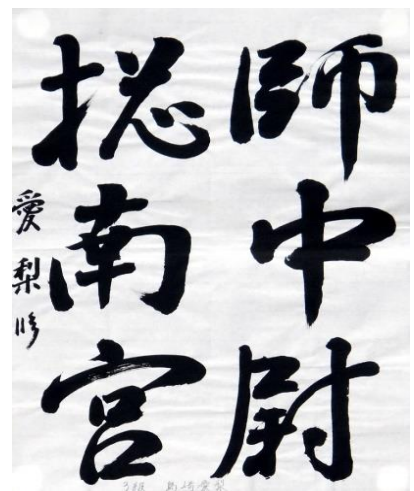 師中尉
揔南宮
愛梨